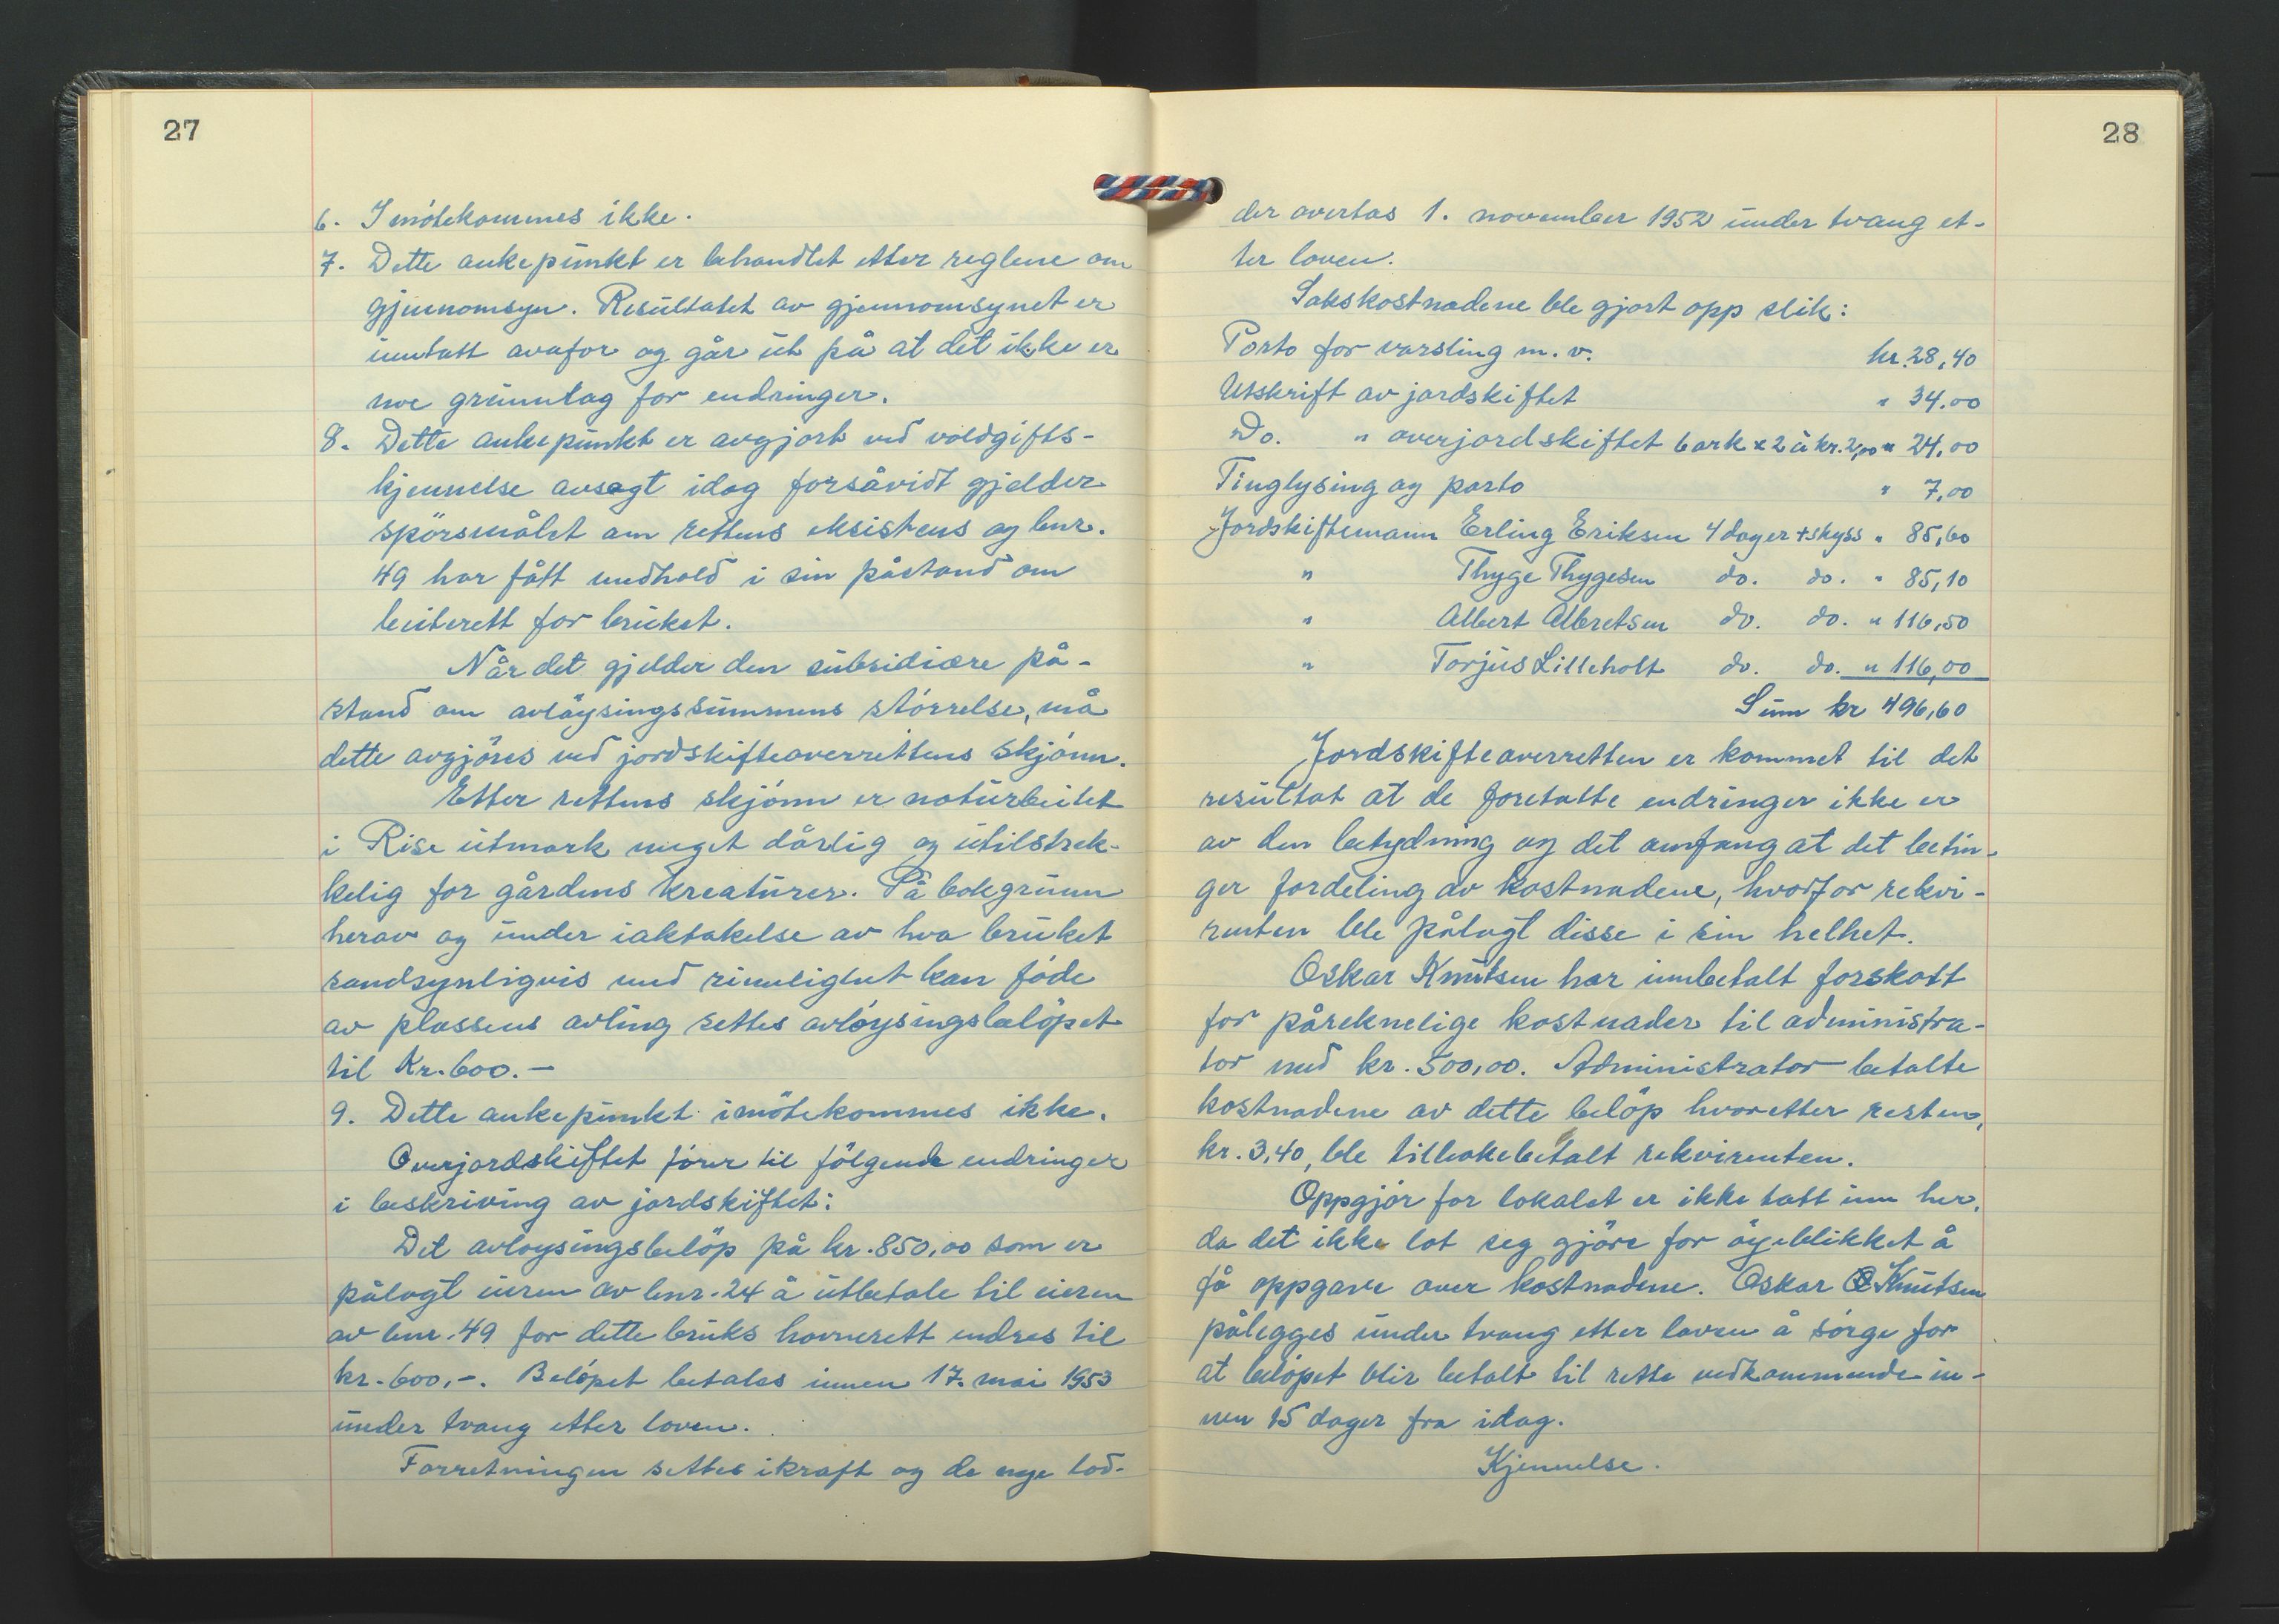 27
6. Imötekommes ikke.
7. Dette ankepunkt er behandlet etter reglene om
gjennomsyn. Resultatet av gjennomsynet er
inntatt ovafor og går ut på at det ikke er
noe grunnlag for endringer.
8. Dette ankepunkt er avgjort ved voldgifts-
kjennelse avsagt idag forsåvidt gjelder
spörsmålet om rettens eksistens og bnr.
49 har fått medhold i sin påstand om
beiterett for bruket.
Når det gjelder den subsidiære på-
stand om avlöysingssummens störrelse, må
dette avgjöres ved jordskifteoverrettens skjönn.
Etter rettens skjönn er naturbeitet
i Rise utmark meget dårlig og utilstrek-
kelig for gårdens kreaturer. På bakgrunn
herav og under iaktakelse av hva bruket
sandsynligvis med rimelighet kan föde
av plassens avling settes avlöysingsbelöpet
til Kr. 600.-
9. Dette ankepunkt imötekommes ikke.
Overjordskiftet förer til fölgende endringer
i beskriving av jordskiftet:
Det avloysingsbelöp på kr. 850,00 som er
pålagt eieren av bnr. 24 å utbetale til eieren
av bnr. 49 for dette bruks havnerett endres til
kr. 600,-. Belöpet betales innen 17. mai 1953
under tvang etter loven.
Forretningen settes ikraft og de nye lod-
28
der overtas 1. november 1952 under tvang et-
ter loven.
Sakskostnadene ble gjort opp slik:
Porto for varsling m.v. kr. 28,40
Utskrift av jordskiftet " 34.00
Do. " overjordskiftet 6 ark x 2 à kr. 2,00 " 24,00
Tinglysing og porto " 7,00
Jordskiftemann Erling Eriksen 4 dager + skyss " 85,60
" Thyge Thygesen do. do. " 85,10
" Albert Albretsen do. do. " 116,50
" Torjus Lilleholt do. do. " 116,00
Sum kr 496,60
Jordskifteoverretten er kommet til det
resultat at de foretatte endringer ikke er
av den betydning og det omfang at det betin-
ger fordeling av kostnadene, hvorfor rekvi-
renten ble pålagt disse i sin helhet.
Oskar Knutsen har innbetalt forskott
for påreknelige kostnader til administra-
tor med kr. 500,00. Administrator betalte
kostnadene av dette belöp hvoretter resten,
kr. 3,40, ble tilbakebetalt rekvirenten.
Oppgjör for lokalet er ikke tatt inn her,
da det ikke lot seg gjöre for öyeblikket å
få oppgave over kostnadene. Oskar Knutsen
pålegges under tvang etter loven å sörge for
at belöpet blir betalt til rette vedkommende in-
nen 15 dager fra idag.
Kjennelse.